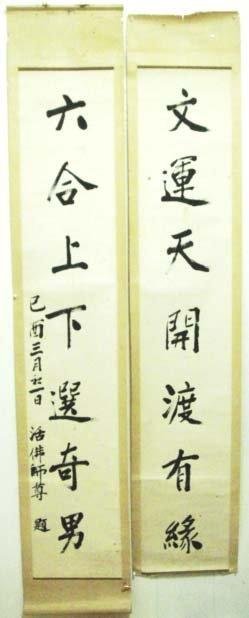 文運天開渡有緣
六合上下選奇男
己酉三月初一日 活佛師尊 題